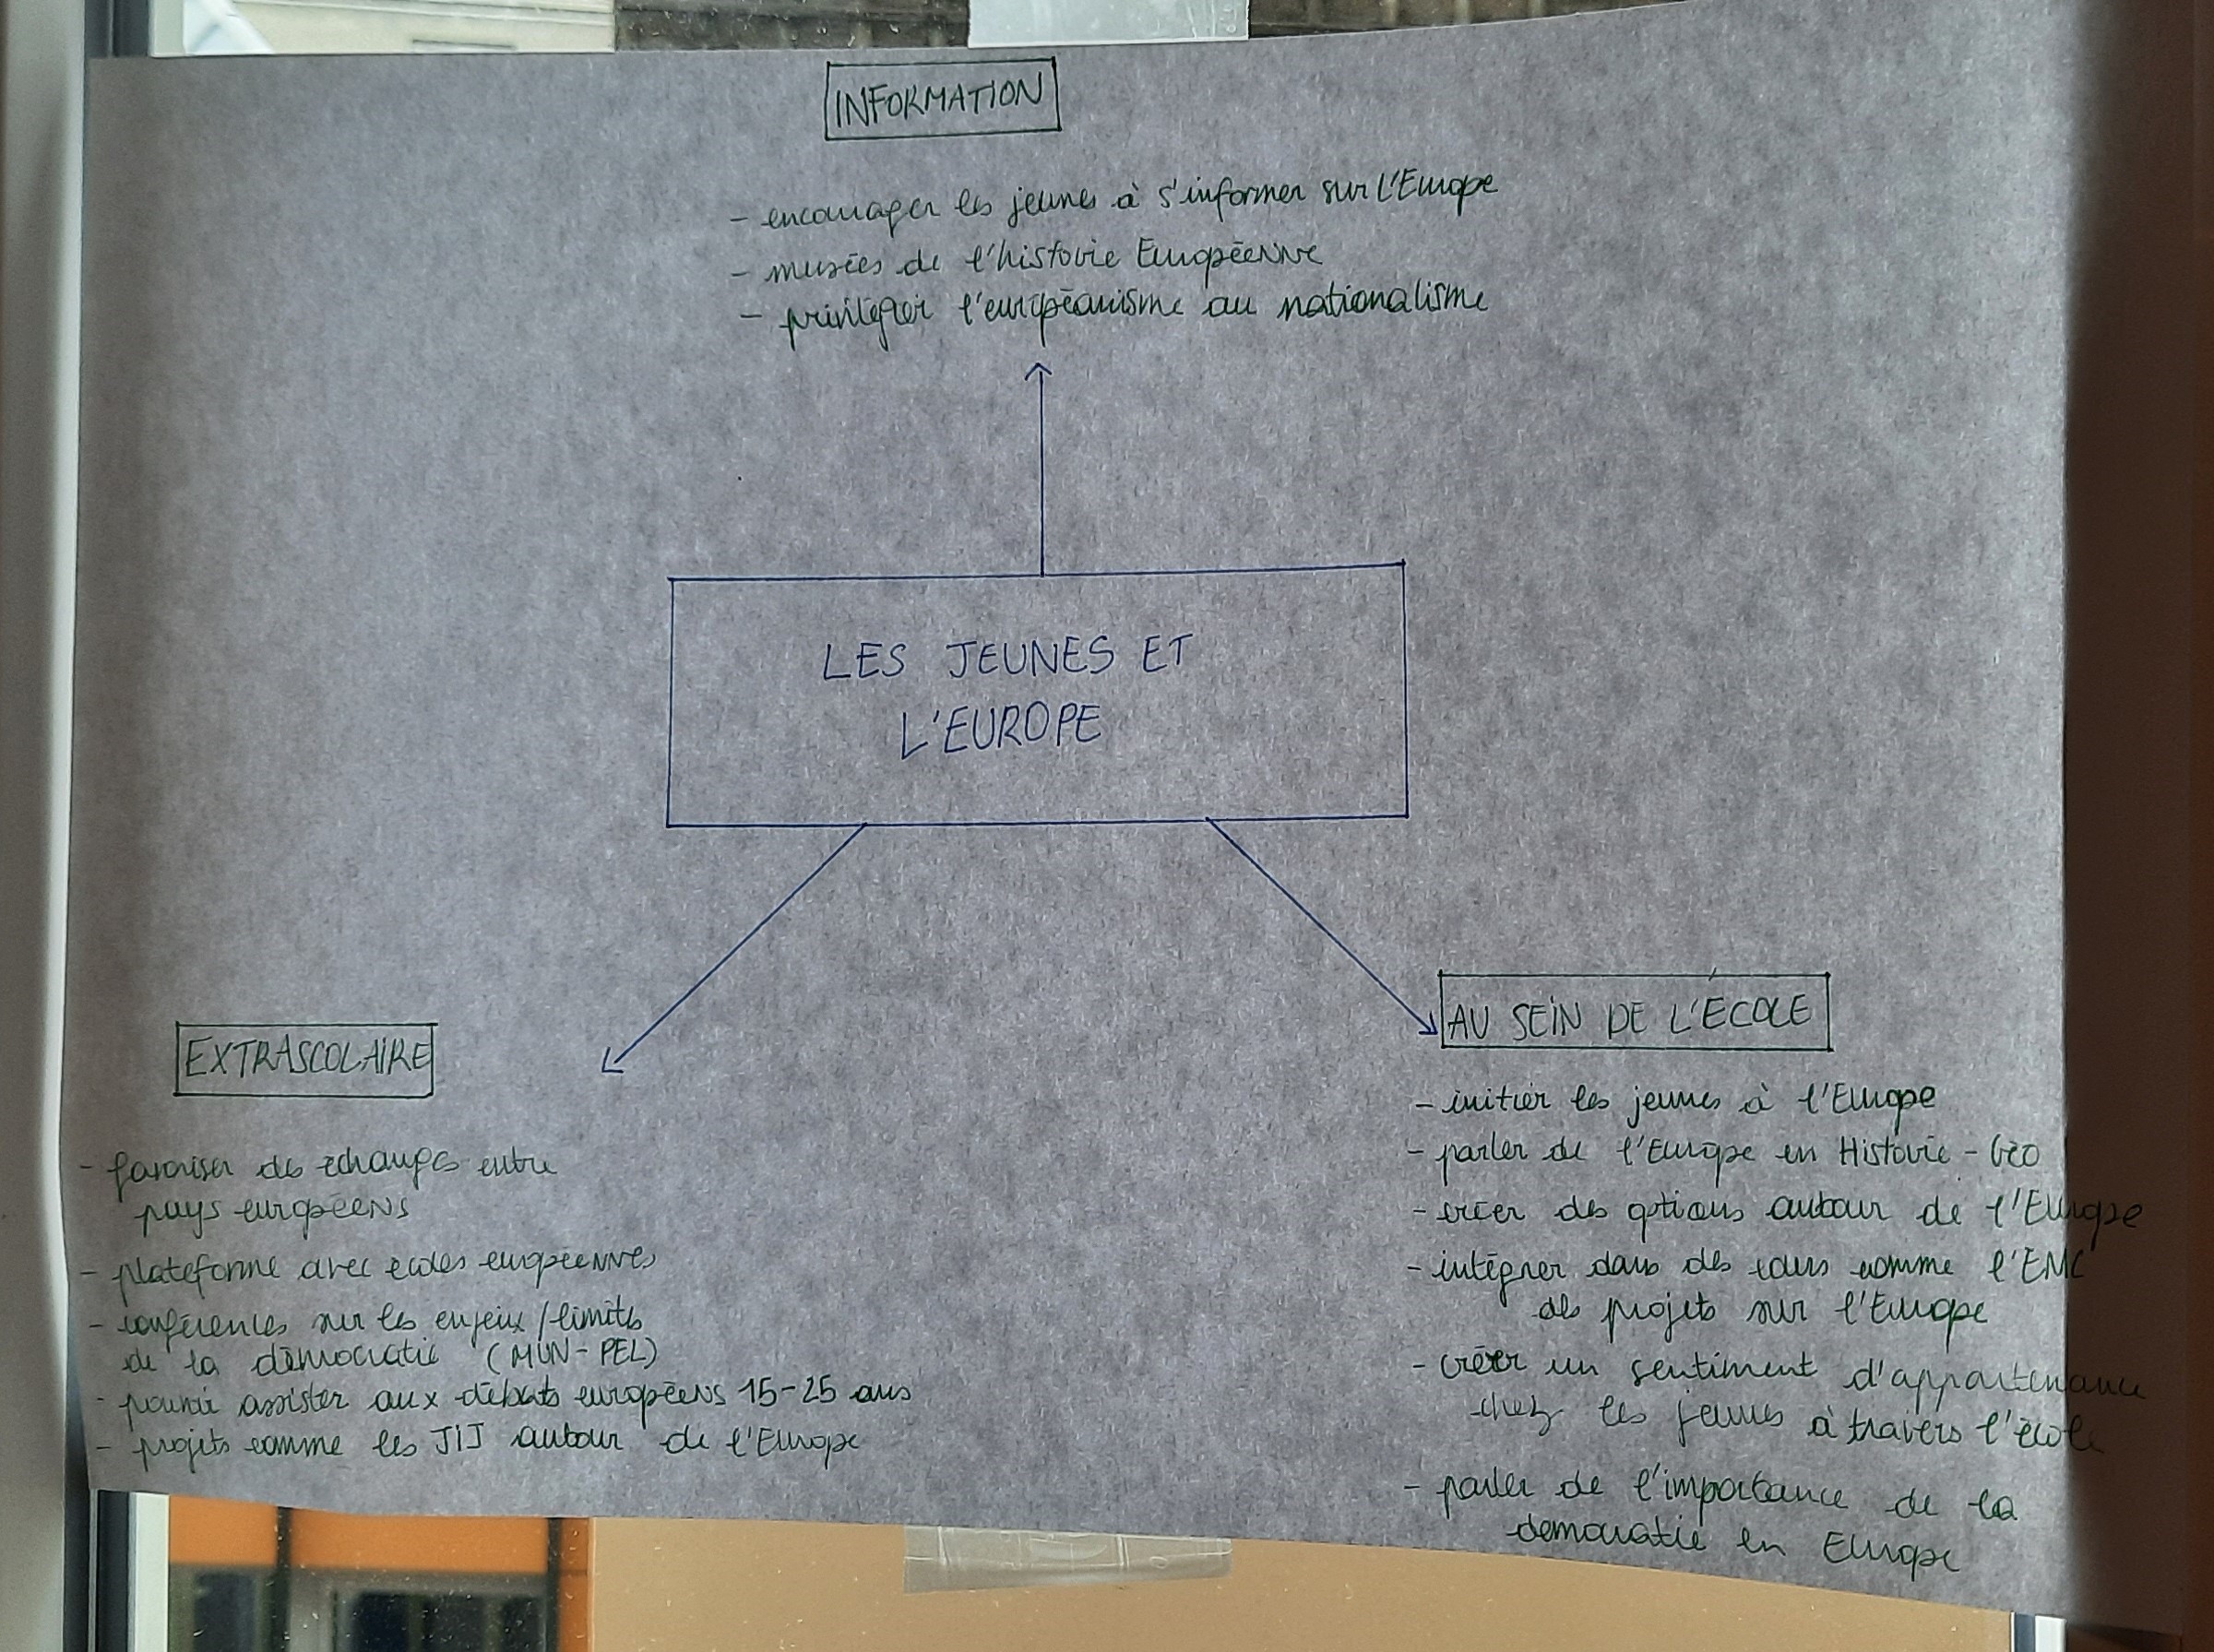 INFORMATION
- encourager les jeunes à s'informer sur L'Europe
- musées de l'histoire Européenne
- privilégier l'européanisme au nationalisme
LES JEUNES ET
L'EUROPE
EXTRASCOLAIRE
- favoriser des échanges entre
pays européens
- plateforme avec écoles européennes
- conférences sur les enjeux/limites
de la démocratie (MUN-PEL)
- pouvoir assister aux débats européens 15-25 ans
- projets comme les JIJ autour de l'Europe
AU SEIN DE L'ÉCOLE
- initier les jeunes à l'Europe
- parler de l'Europe en Histoire-Géo
- créer des options autour de l'Europe
- intégrer dans des cours comme l'EMC
des projets sur l'Europe
- créer un sentiment d'appartenance
chez les jeunes à travers l'école
- parler de l'importance de la
démocratie en Europe